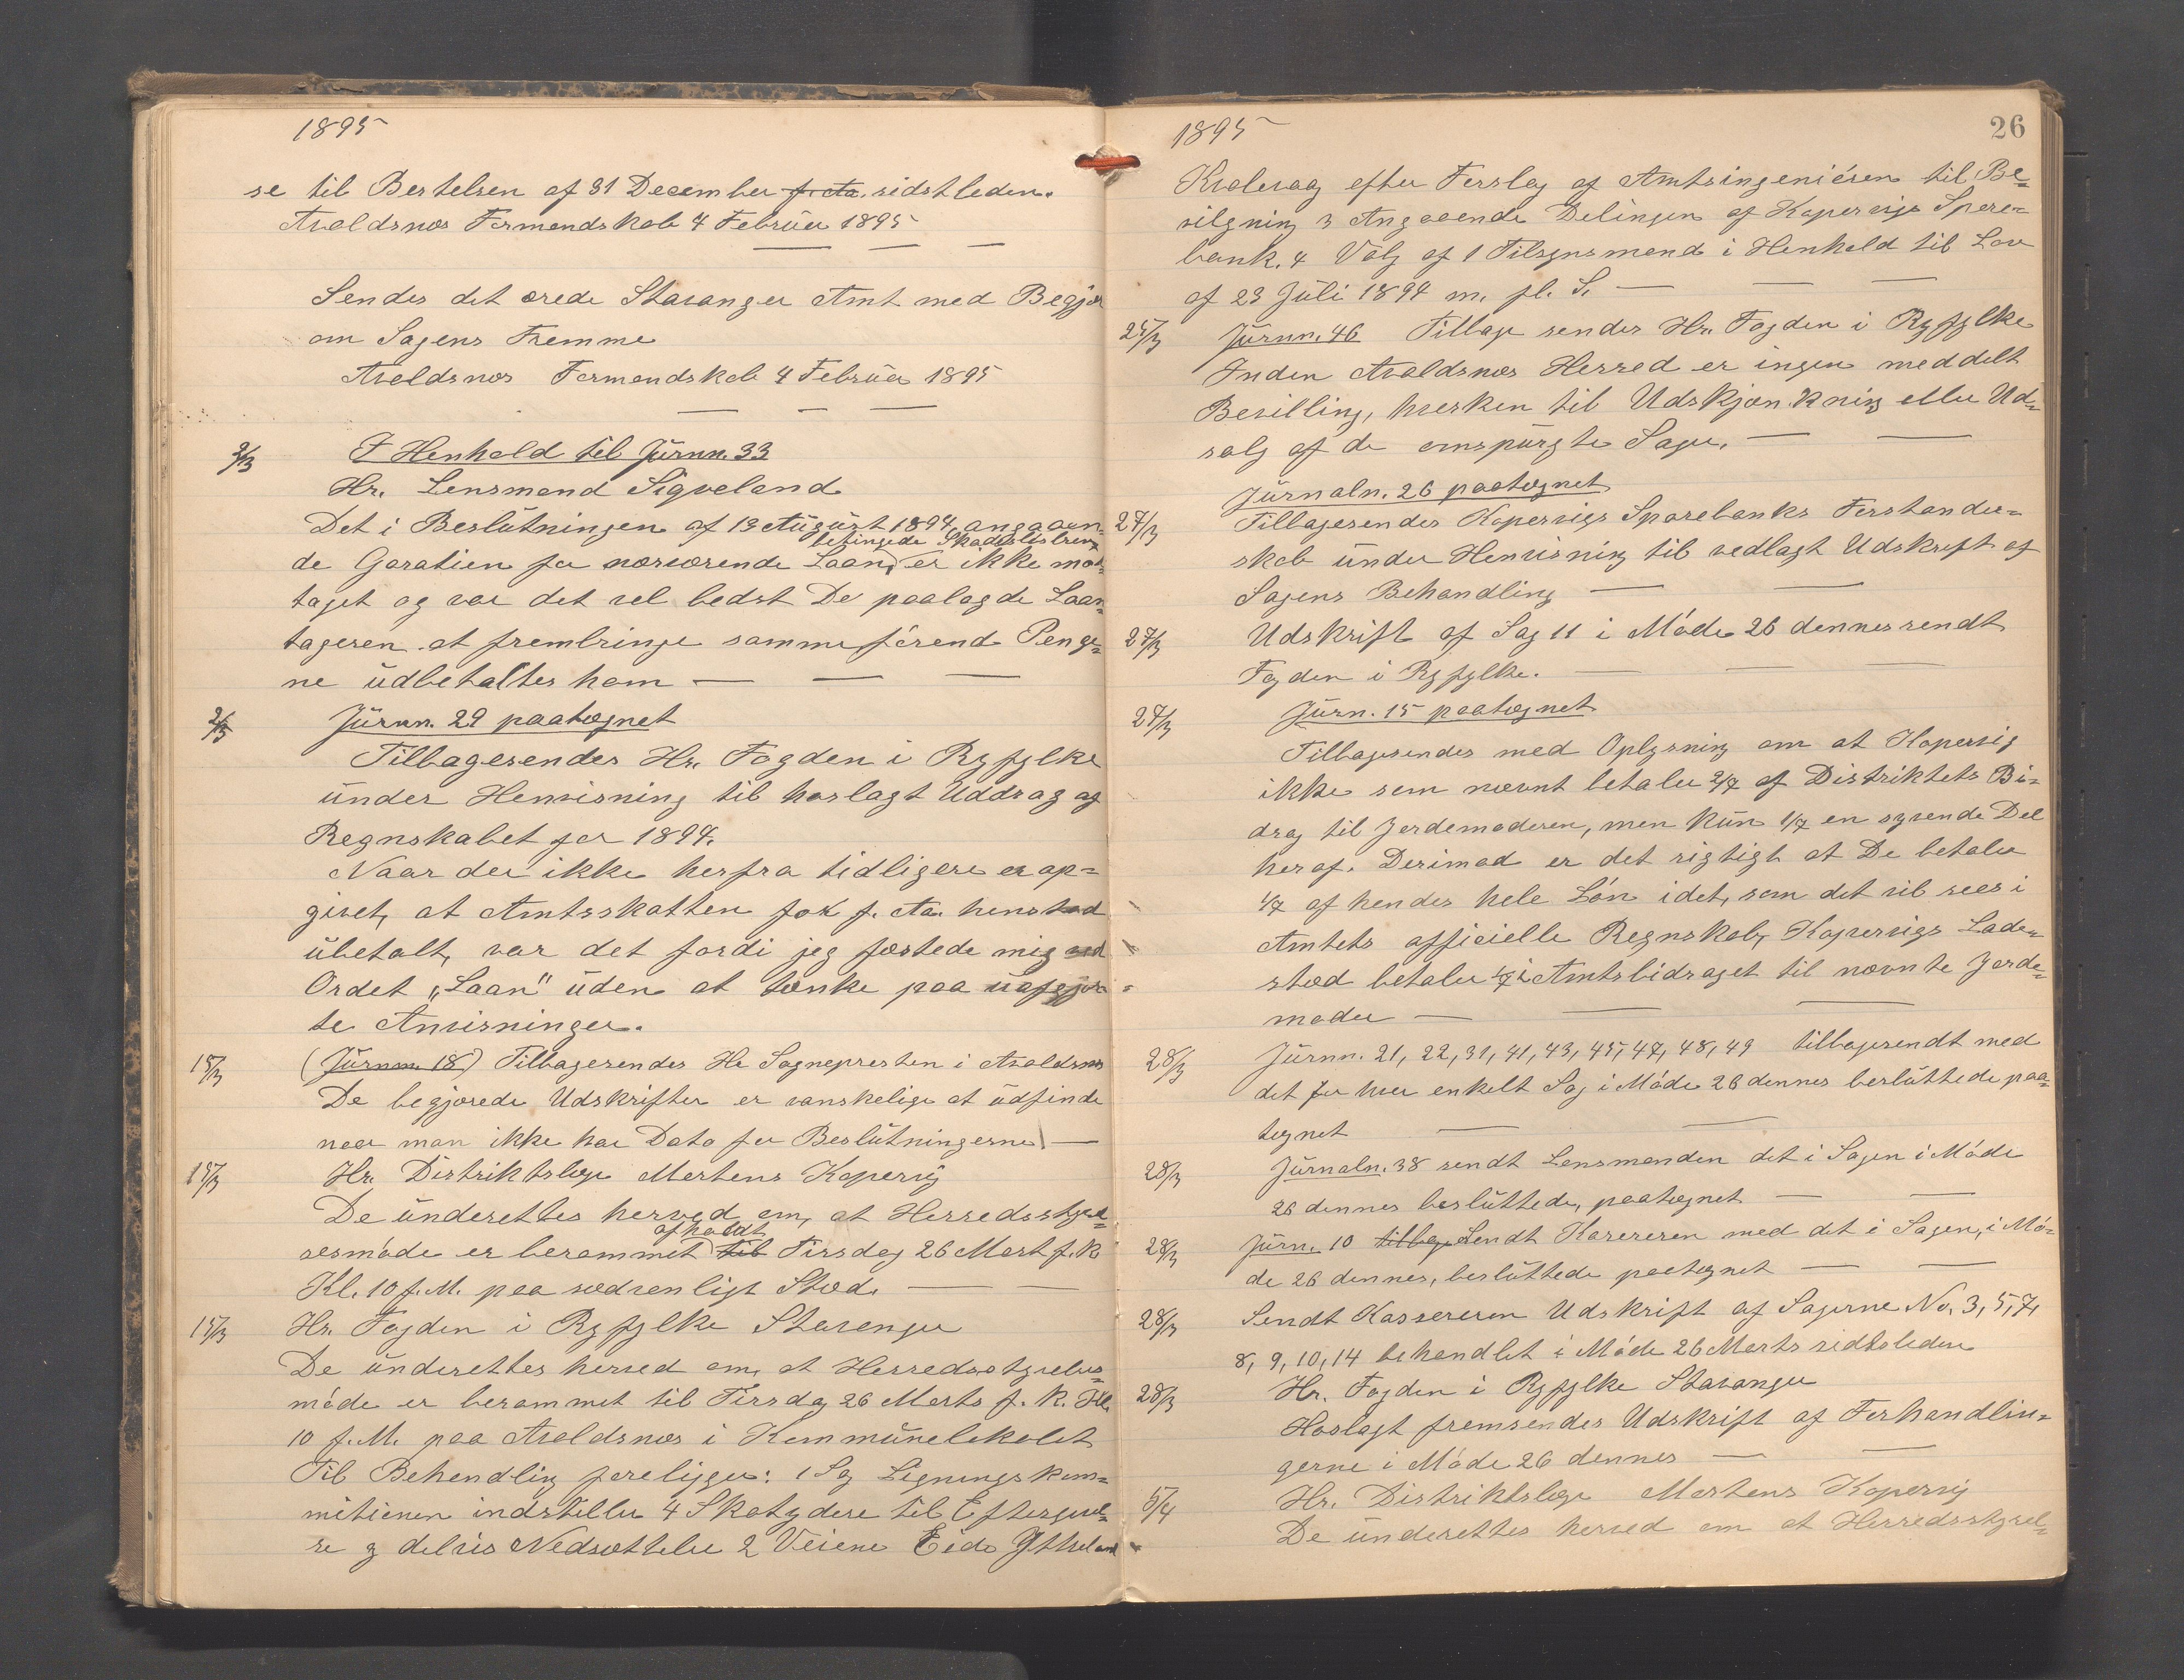 1895
se til Bestelsen af 31 December f. Aa. sidstleden.
Avaldsnes Formandskab 4 Februar 1895
Sendes det ærede Stavanger Amt med Begjær
om Sagens Fremme
Avaldsnes Formandskab 4 Februar 1895
2/3 I Henhold til Journ. 33
Hr. Lensmand Sigveland
Det i Beslutningen af 13 August 1894, angaaen-
betingede Skadesløsbrev
de Garatien for nærværende Laan, er ikke mod-
taget og var det vel bedst De paalagde Laan-
tageren at frembringe samme førend Penge-
ne udbetaltes ham
2/3 Journ. 29 paategnet
Tilbagesendes Hr. Fogden i Ryfylke
under Henvisning til hoslagt Uddrag af
Regnskabet for 1894.
Naar der ikke herfra tidligere er op-
givet, at Amtsskatten for f. Aa. henstod
ubetalt, var det fordi jeg fæstede mig ved
Ordet „Laan" uden at tænke paa uafgjor-
te Anvisninger.
15/3 (Journ. 18) Tilbagesendes Hr Sognepresten i Avaldsnes
De begjærede Udskrifter er vanskelige at udfinde
naar man ikke har Dato for Beslutningerne
15/3 Hr. Distriktslæge Mertens Kopervig
De underettes herved om, at Herredsstyrel-
afholdt
sesmøde er berammet til Tirsdag 26 Mart f. k
Kl. 10 f. M. paa sædvanligt Sted.
15/3 Hr. Fogden i Ryfylke Stavanger
De underettes herved om, at Herredsstyrelses-
møde er berammet til Tirsdag 26 Marts f. k. Kl.
10 f. M. paa Avaldsnes i Kommunelokalet
Til Behandling foreligger: 1 Sag Ligningskom-
mitionen indstiller 4 Skatydere til Eftergivel-
se g delvis Nedsættelse 2 Veiene Eide Ytreland
1895
26
Kvalevaag efter Forslag af Amtsingeniøren til Be-
vilgning 3 Angaaende Delingen af Kopervigs Spare-
bank. 4 Valg af 1 Tilsynsmand i Henhold til Lov
af 23 Juli 1894 m. fl. S.
25/3 Journ. 46 Tilbage sendes Hr. Fogden i Ryfylke
Inden Avaldsnes Herred er ingen meddelt
Bevilling, hverken til Udskjænkning eller Ud-
salg af de omspurgte Sager.
Journaln. 26 paategnet
27/3 Tilbagesendes Kopervigs Sparebanks Forstander-
skab under Henvisning til vedlagt Udskrift af
Sagens Behandling
27/3 Udskrift af Sag 11 i Møde 26 dennes sendt
Fogden i Ryfylke.
27/3 Journ. 15 paategnet
Tilbagesendes med Oplysning om at Kopervig
ikke som nævnt betaler 2/7 af Distriktets Bi-
drag til Jordemoderen, men kun 1/7 en syvende Del
heraf. Derimod er det rigtigt at De betaler
1/7 af hendes hele Løn idet, som det vil sees i
Amtets officielle Regnskab, Kopervigs Lade-
sted betaler 1/7 i Amtsbidraget til nævnte Jorde-
moder
28/3 Journ. 21, 22, 31, 41, 43, 45, 47, 48, 49 tilbagesendt med
det for hver enkelt Sag i Møde 26 dennes besluttede paa-
tegnet
28/3 Journaln. 38 sendt Lensmanden det i Sagen i Møde
26 dennes besluttede, paategnet
28/3 Journ. 10 tilbage Sendt Kasereren med det i Sagen, i Mø-
de 26 dennes, besluttede paategnet
28/3 Sendt Kassereren Udskrift af Sagerne No. 3, 5, 7,
8, 9, 10, 14 behandlet i Møde 26 Marts sidstleden
28/3 Hr. Fogden i Ryfylke Stavanger
Hoslagt fremsendes Udskrift af Forhandlin-
gerne i Møde 26 dennes
5/4 Hr. Distriktslæge Mertens Kopervig
De underettes herved om at Herredsstyrel-